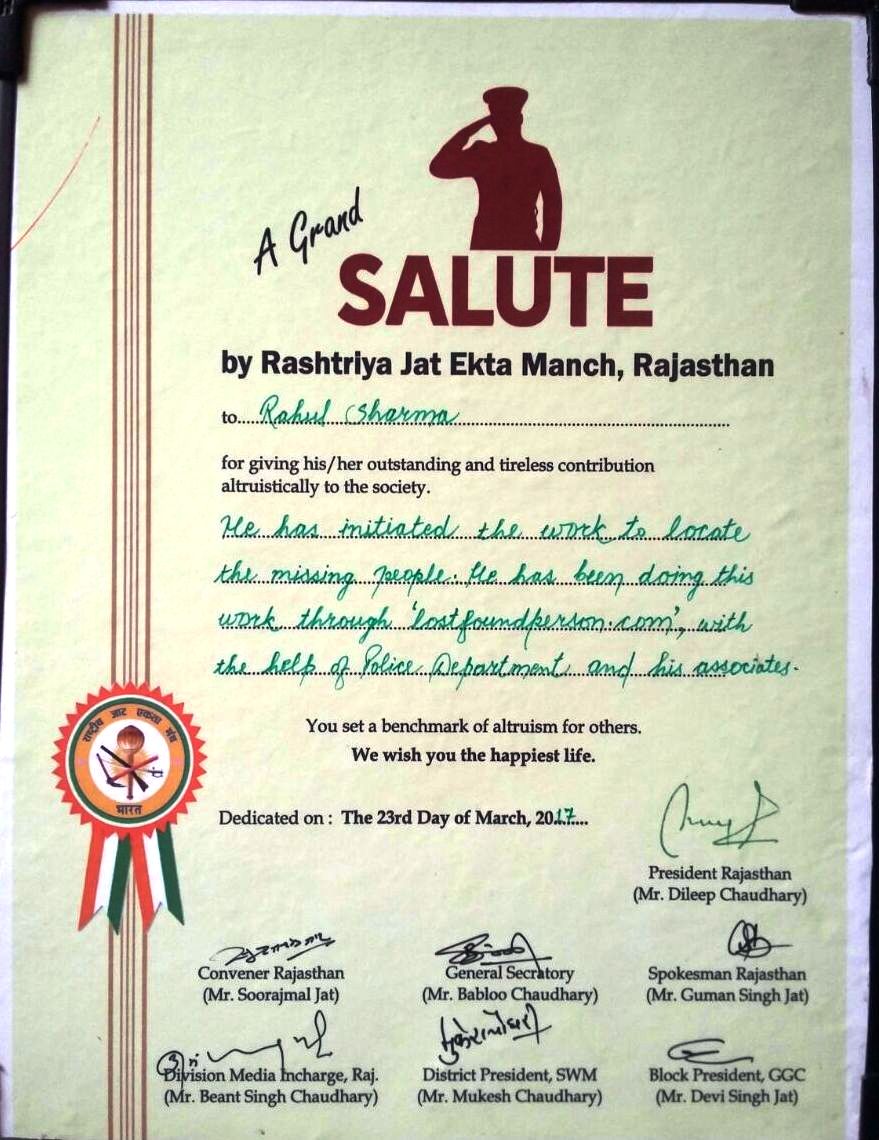 A Grand
SALUTE
by Rashtriya Jat Ekta Manch, Rajasthan
to....Rahul Sharma....
for giving his/her outstanding and tireless contribution
altruistically to the society.
He has initiated the work to locate
the missing people. He has been doing this
work through 'lostfoundperson.com', with
the help of Police Department and his associates.
You set a benchmark of altruism for others.
We wish you the happiest life.
राष्ट्रीय जाट एकता मंच
भारत
Dedicated on : The 23rd Day of March, 2017...
President Rajasthan
(Mr. Dileep Chaudhary)
Convener Rajasthan
(Mr. Soorajmal Jat)
General Secratory
(Mr. Babloo Chaudhary)
Spokesman Rajasthan
(Mr. Guman Singh Jat)
Division Media Incharge, Raj.
(Mr. Beant Singh Chaudhary)
District President, SWM
(Mr. Mukesh Chaudhary)
Block President, GGC
(Mr. Devi Singh Jat)